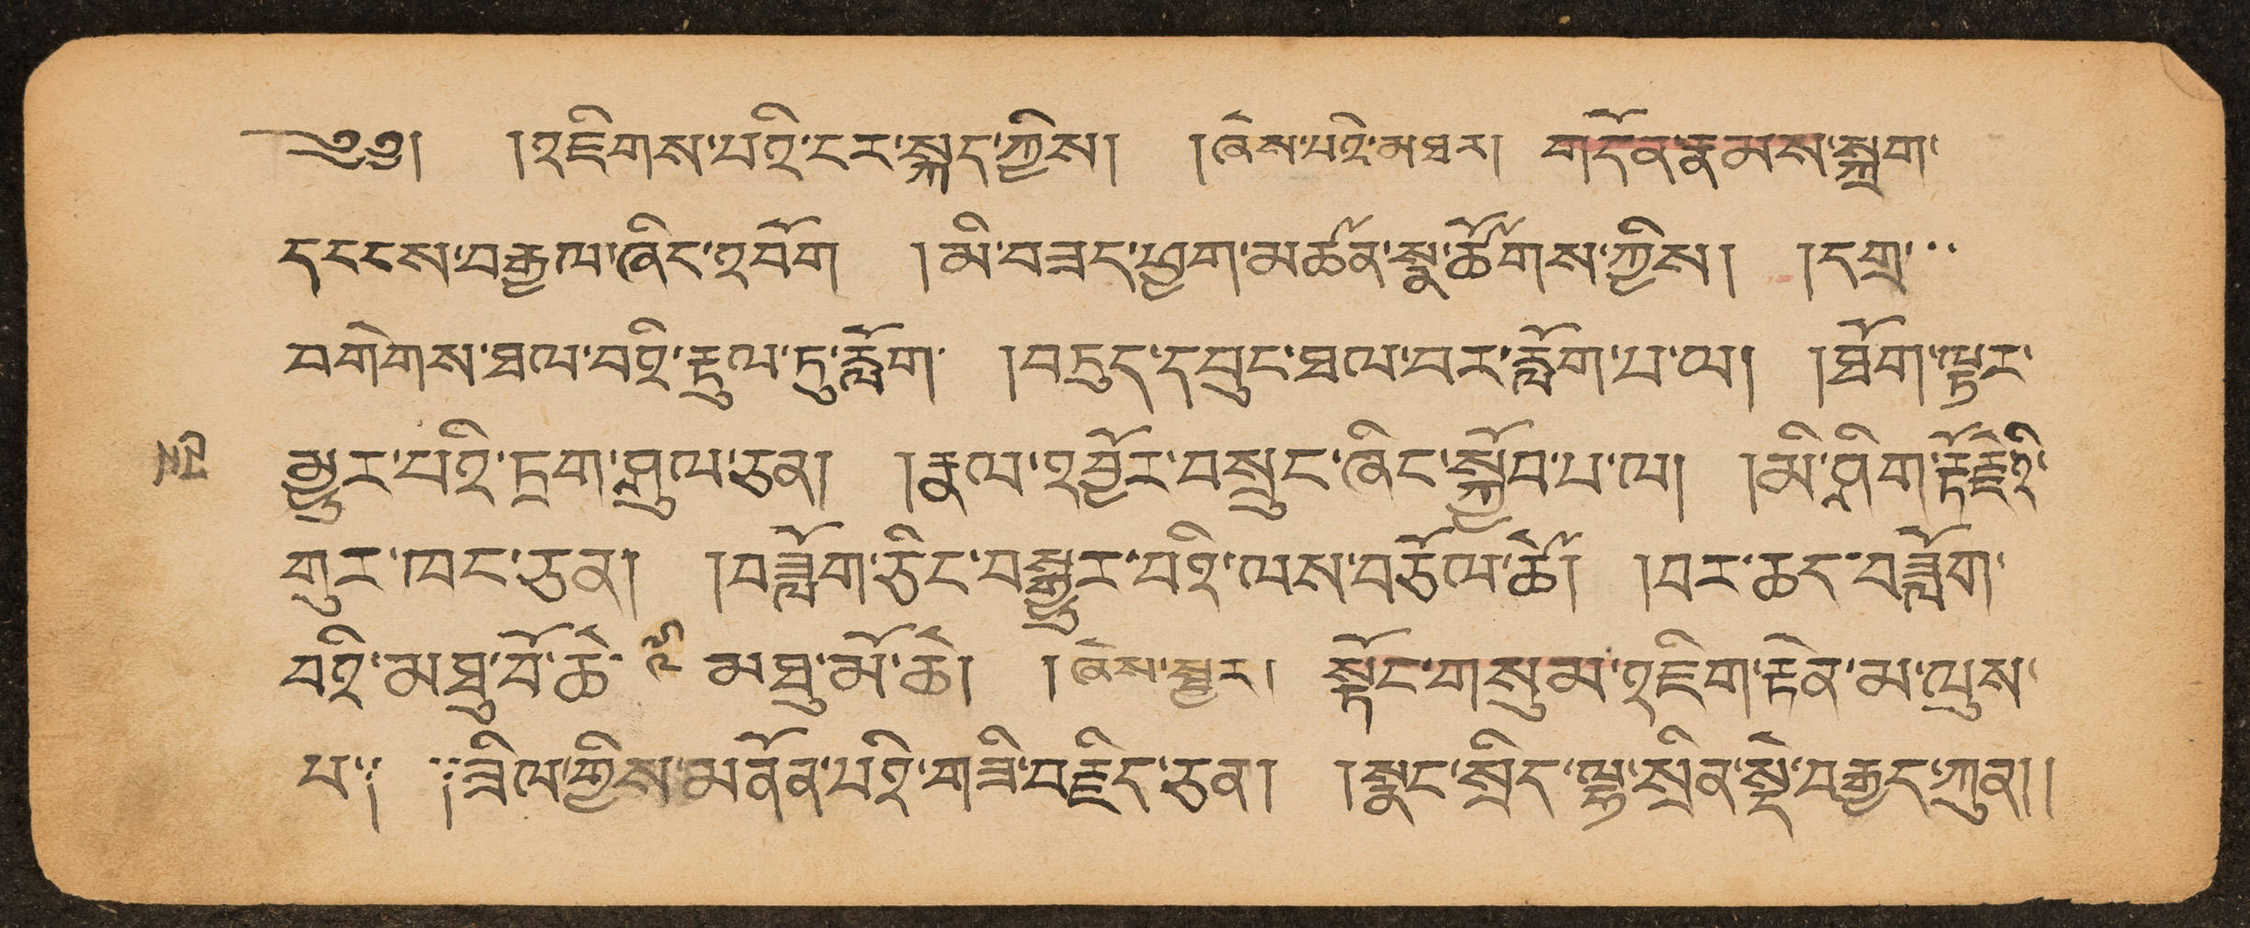 ༄༅། །འཇིགས་པའི་ངར་སྐད་ཀྱིས། །ཞེས་པའི་མཐར། གདོན་རྣམས་སྐྲག་
དངངས་བརྒྱལ་ཞིང་འབོག །མི་བཟད་ཕྱག་མཚོན་སྣ་ཚོགས་ཀྱིས། །དགྲ་
བགེགས་ཐལ་བའི་རྡུལ་དུ་རློག །བདུད་དཔུང་ཐལ་བར་རློག་པ་ལ། །ཐོག་ལྟར་
མྱུར་བའི་དྲག་ཤུལ་ཅན། །རྣལ་འབྱོར་བསྲུང་ཞིང་སྐྱོབ་པ་ལ། །མི་ཤིག་རྡོ་རྗེའི་
གུར་ཁང་ཅན། །བཟློག་ཅིང་བསྒྱུར་བའི་ལས་བཅོལ་ཚེ། །བར་ཆད་བཟློག་
པའི་མཐུ་བོ་ཆེ མཐུ་མོ་ཆེ། །ཞེས་སྦྱར། སྟོང་གསུམ་འཇིག་རྟེན་མ་ལུས་
པ༑ ༑ཟིལ་གྱིས་མནོན་པའི་གཟི་བརྗིད་ཅན། །སྣང་སྲིད་ལྷ་སྲིན་སྡེ་བརྒྱད་ཀུན།།